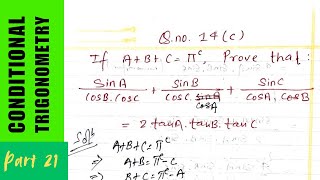 CONDITIONAL
TRIGONOMETRY
Part 21
Q.no. 14(c)
If A+B+C = πᶜ, Prove that:
SinA / cosB.cosC + SinB / cosC.cosA + SinC / cosA.cosB
= 2 tanA.tanB.tanC
Solⁿ
A+B+C = πᶜ
⇒ A+B = πᶜ-C
⇒ B+C = πᶜ-A